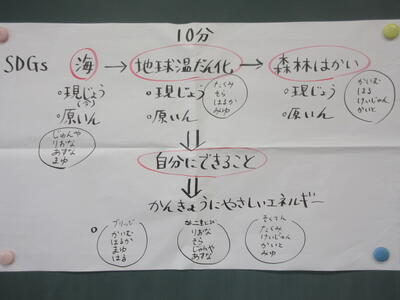 10分
SDGs 海 → 地球温だん化 → 森林はかい
○現じょう(今)
○原いん
じゅんや
りおな
あすな
まゆ
○現じょう
○原いん
たくみ
そら
はるか
みゆ
○現じょう
○原いん
かいむ
はる
けいじゅん
かいと
自分にできること
かんきょうにやさしいエネルギー
ブリッジ
かいむ
はるか
まゆ
はる
りおな
そら
じゅんや
あすな
たくみ
けいじゅん
かいと
みゆ